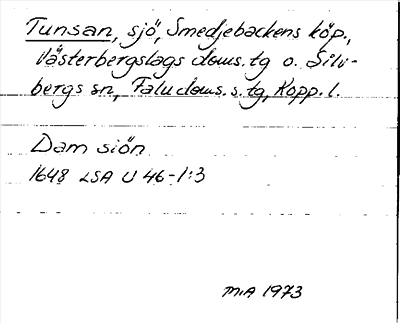 Tunsan, sjö, Smedjebackens köp.,
Västerbergslags doms.tg o. Silv-
bergs sn, Falu doms.s.tg, Kopp.l.
Dam siön
1648 LSA U 46-1:3
MIA 1973